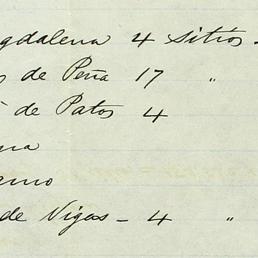 gdalena 4 Sitios -
de Peña 17 "
de Patos 4
na
amo
de Vigas - 4 "